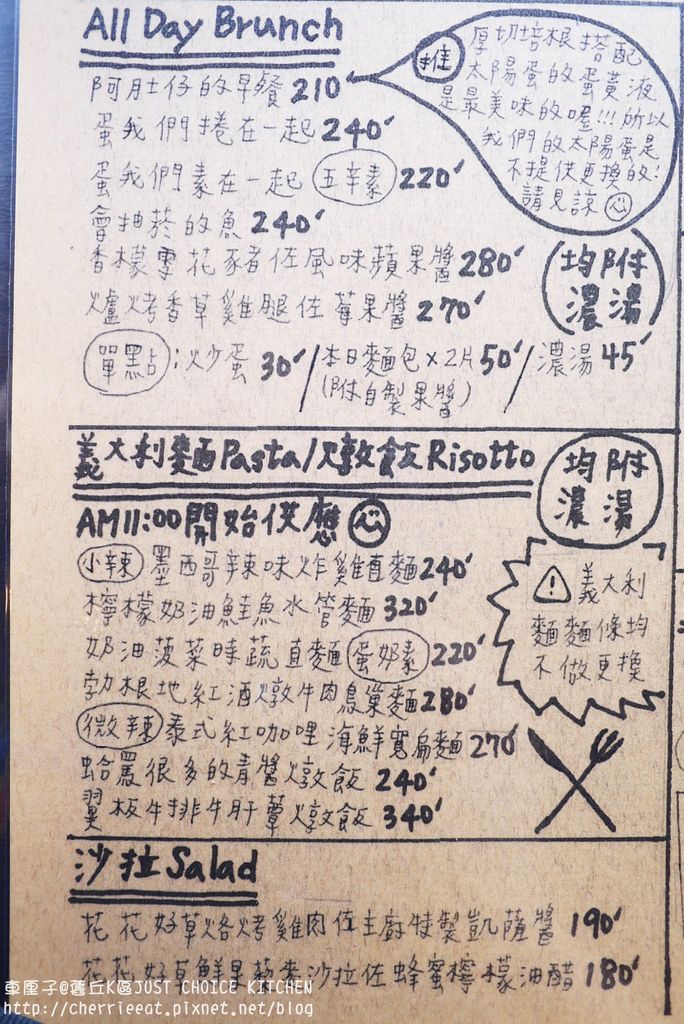 All Day Brunch
阿肚仔的早餐 210'
蛋我們捲在一起 240'
蛋我們素在一起 五辛素 220'
會抽菸的魚 240'
香檬雪花豬佐風味蘋果醬 280'
爐烤香草雞腿佐莓果醬 270'
推 厚切培根搭配
太陽蛋的蛋黃液
是最美味的喔!!! 所以
我們的太陽蛋是
不提供更換的!
請見諒
均附
濃湯
單點 : 炒蛋 30' / 本日麵包 x 2片 50' / 濃湯 45'
(附自製果醬)
義大利麵 Pasta/燉飯 Risotto
均附
濃湯
AM 11:00 開始供應
小辣 墨西哥辣味炸雞直麵 240'
檸檬奶油鮭魚水管麵 320'
奶油菠菜時蔬直麵 蛋奶素 220'
勃根地紅酒燉牛肉鳥巢麵 280'
微辣 泰式紅咖哩海鮮寬扁麵 270'
蛤蠣很多的青醬燉飯 240'
翼板牛排牛肝蕈燉飯 340'
義大利
麵麵條均
不做更換
沙拉 Salad
花花好草烙烤雞肉佐主廚特製凱薩醬 190'
花花好草鮮旱藕麥沙拉佐蜂蜜檸檬油醋 180'
車厘子@舊丘K區JUST CHOICE KITCHEN
http://cherrieeat.pixnet.net/blog